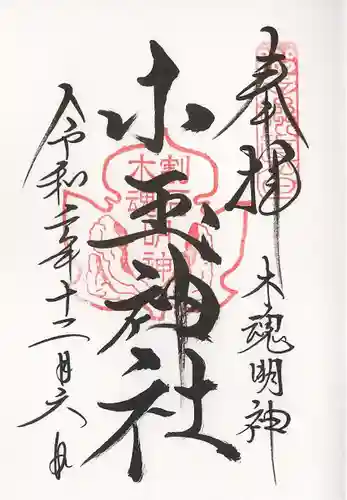 奉拝
木魂明神
小玉神社
令和二年十二月六日
木魂
神